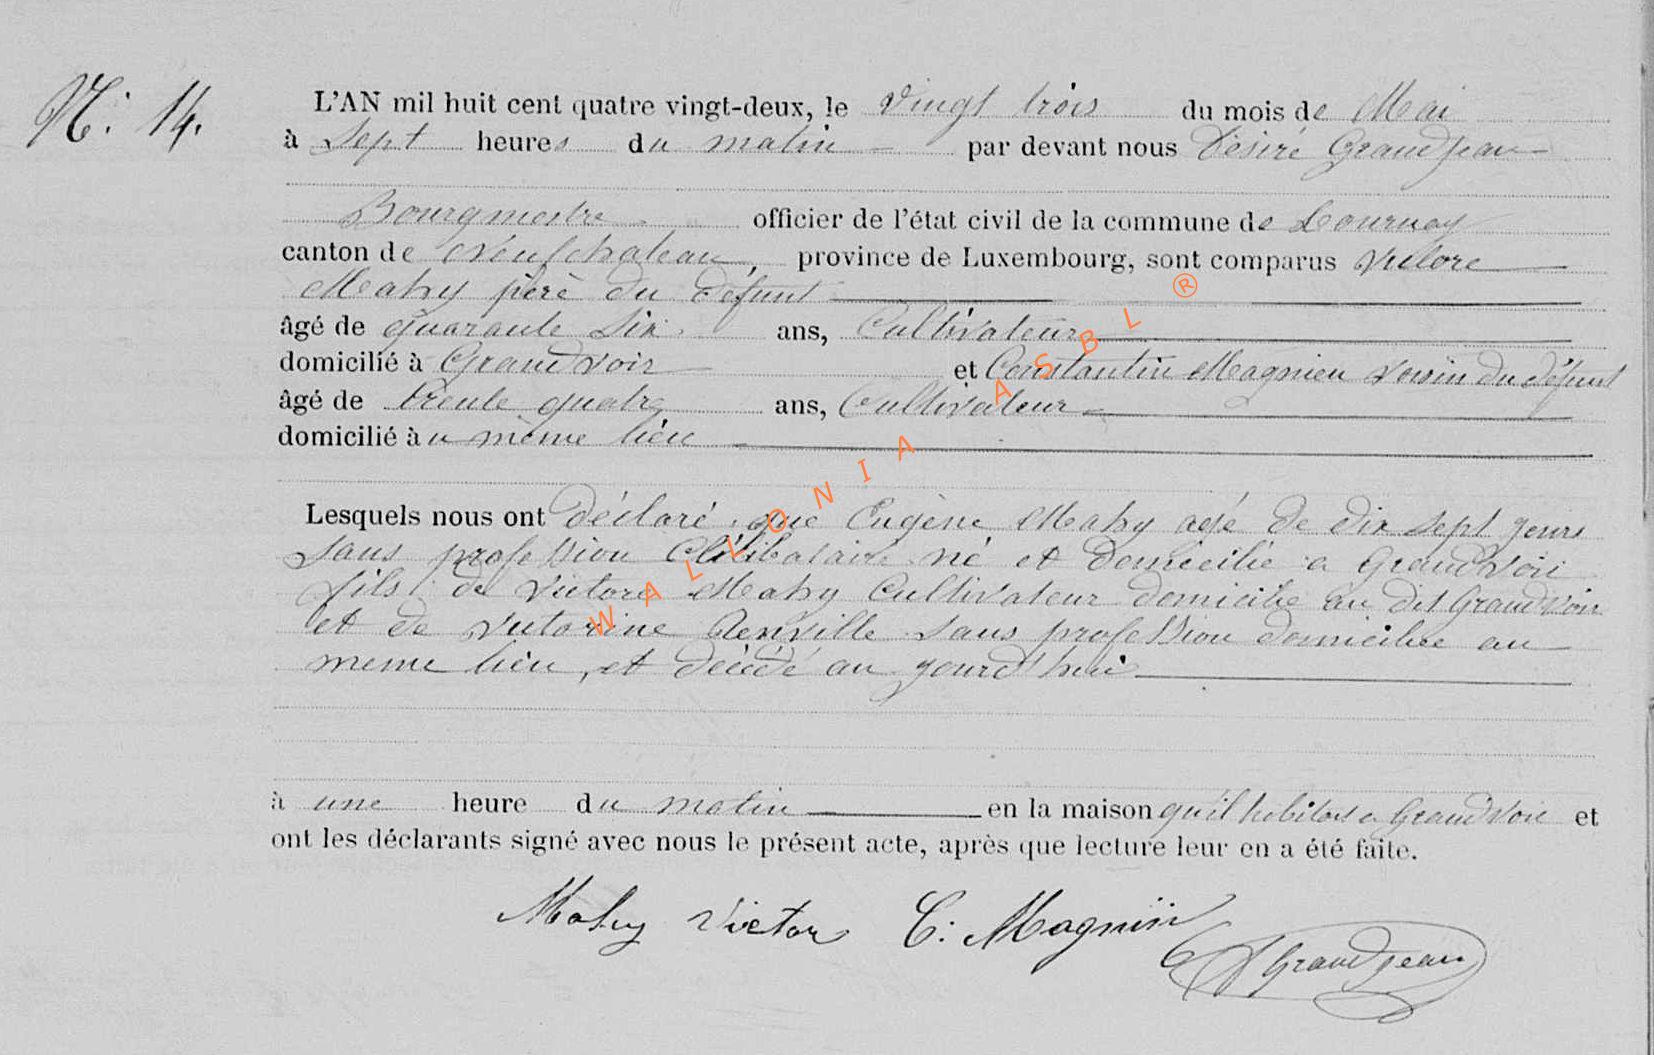 N: 14.
L'AN mil huit cent quatre vingt-deux, le Vingt trois du mois de Mai
à Sept heures du matin par devant nous Désiré Grandjean
Bourgmestre officier de l'état civil de la commune de Tournay
canton de Neufchateau, province de Luxembourg, sont comparus Victore
Mahy père du défunt
âgé de quarante Six ans, Cultivateur
domicilié à Grandvoir et Constantin Magnien voisin du défunt
âgé de trente quatre ans, Cultivateur
domicilié au même lieu
Lesquels nous ont déclaré que Eugène Mahy agé de dix sept jours
sans profession Célibataire né et domicilié a Grandvoir
fils de Victore Mahy Cultivateur domicilié au dit Grandvoir
et de Victorine sans profession domiciliée au
meme lieu, et décédé au jourd'hui
à une heure du matin en la maison qu'il habitait a Grandvoir et
ont les déclarants signé avec nous le présent acte, après que lecture leur en a été faite.
Mahy Victor C: Magnien
D Grandjean
WALLONIA ASBL ®